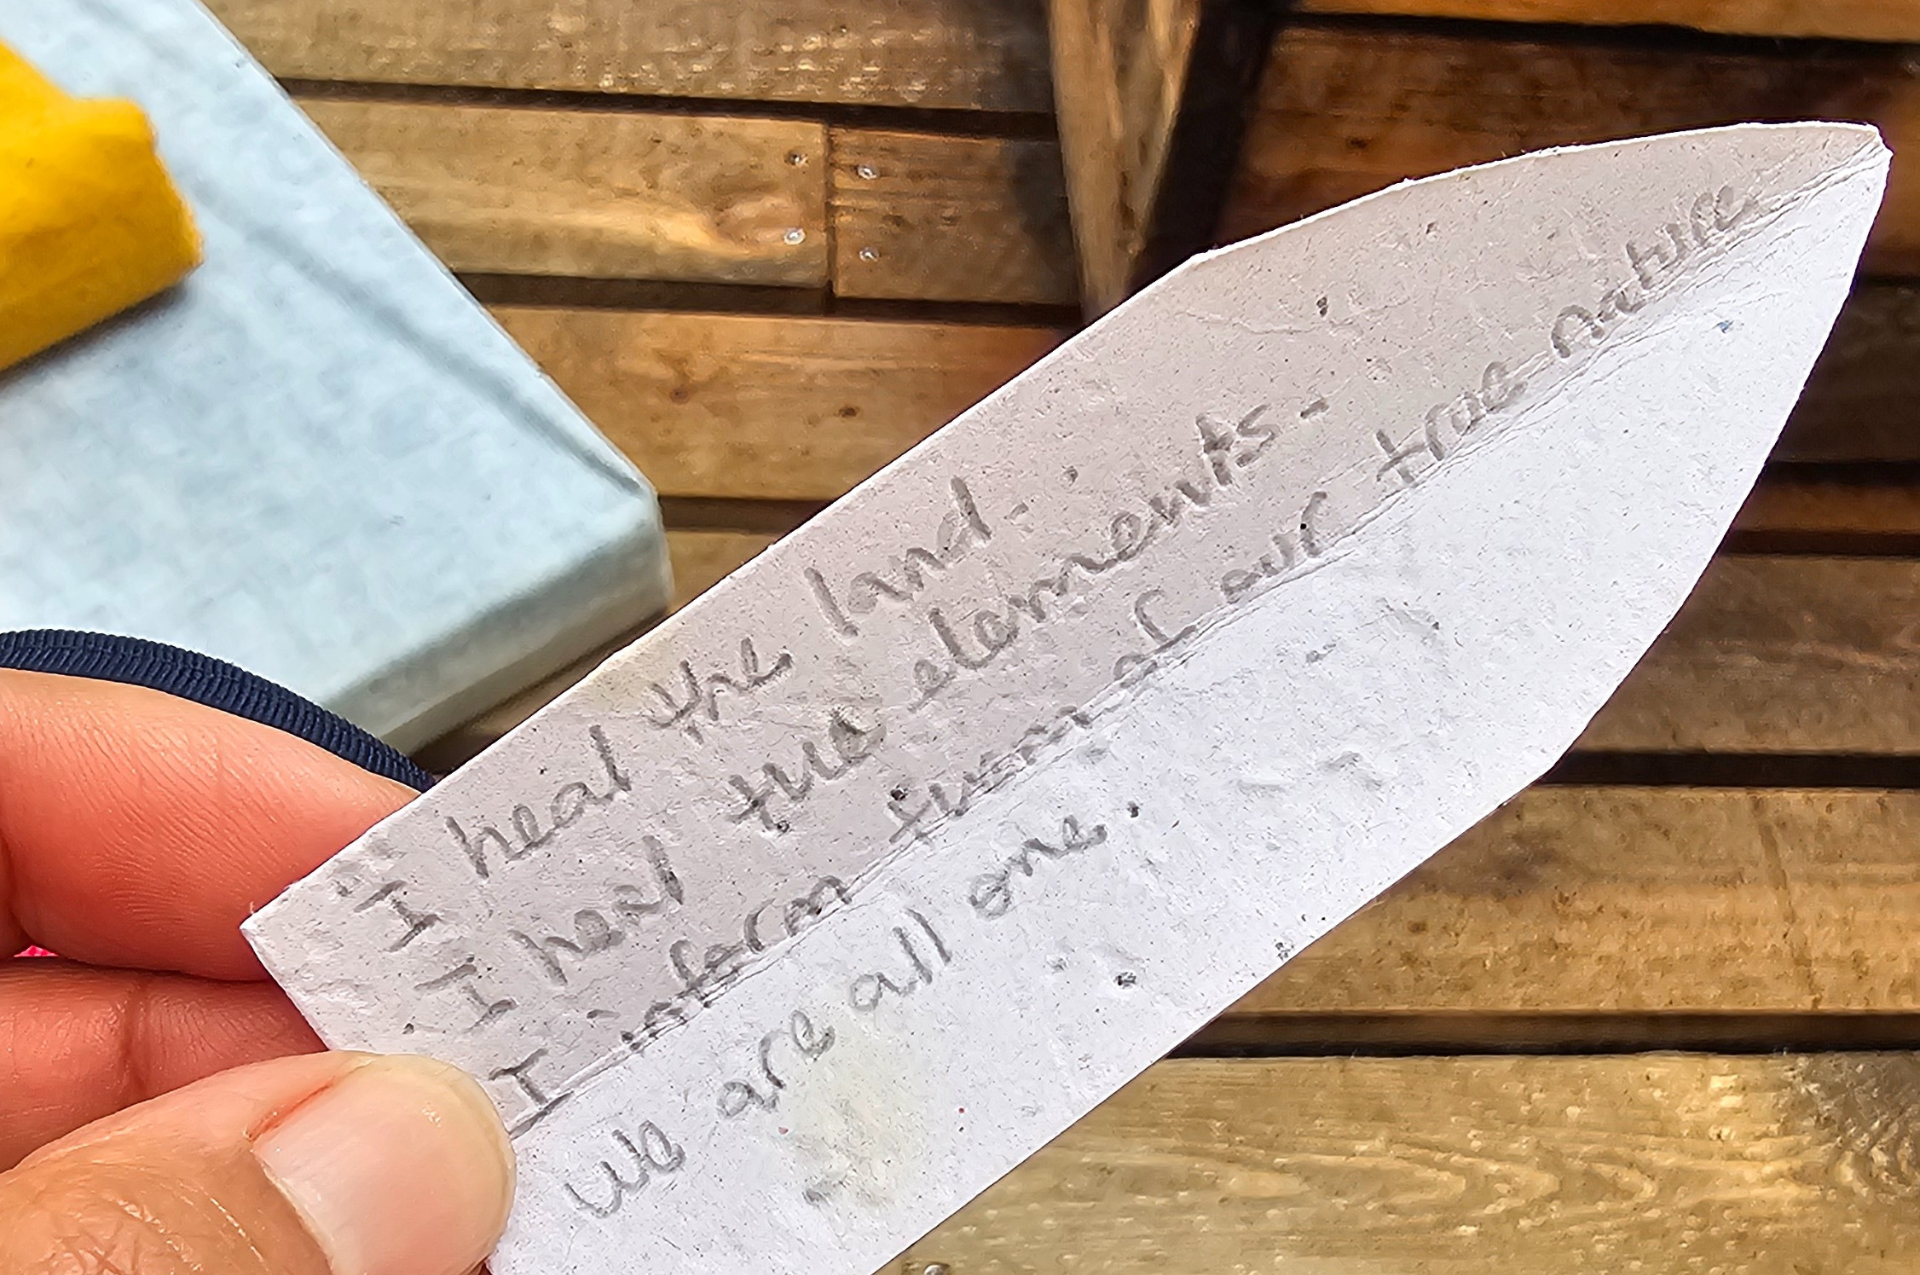 I heal the land.
I heal the elements.
I inform them of our true nature
We are all one.